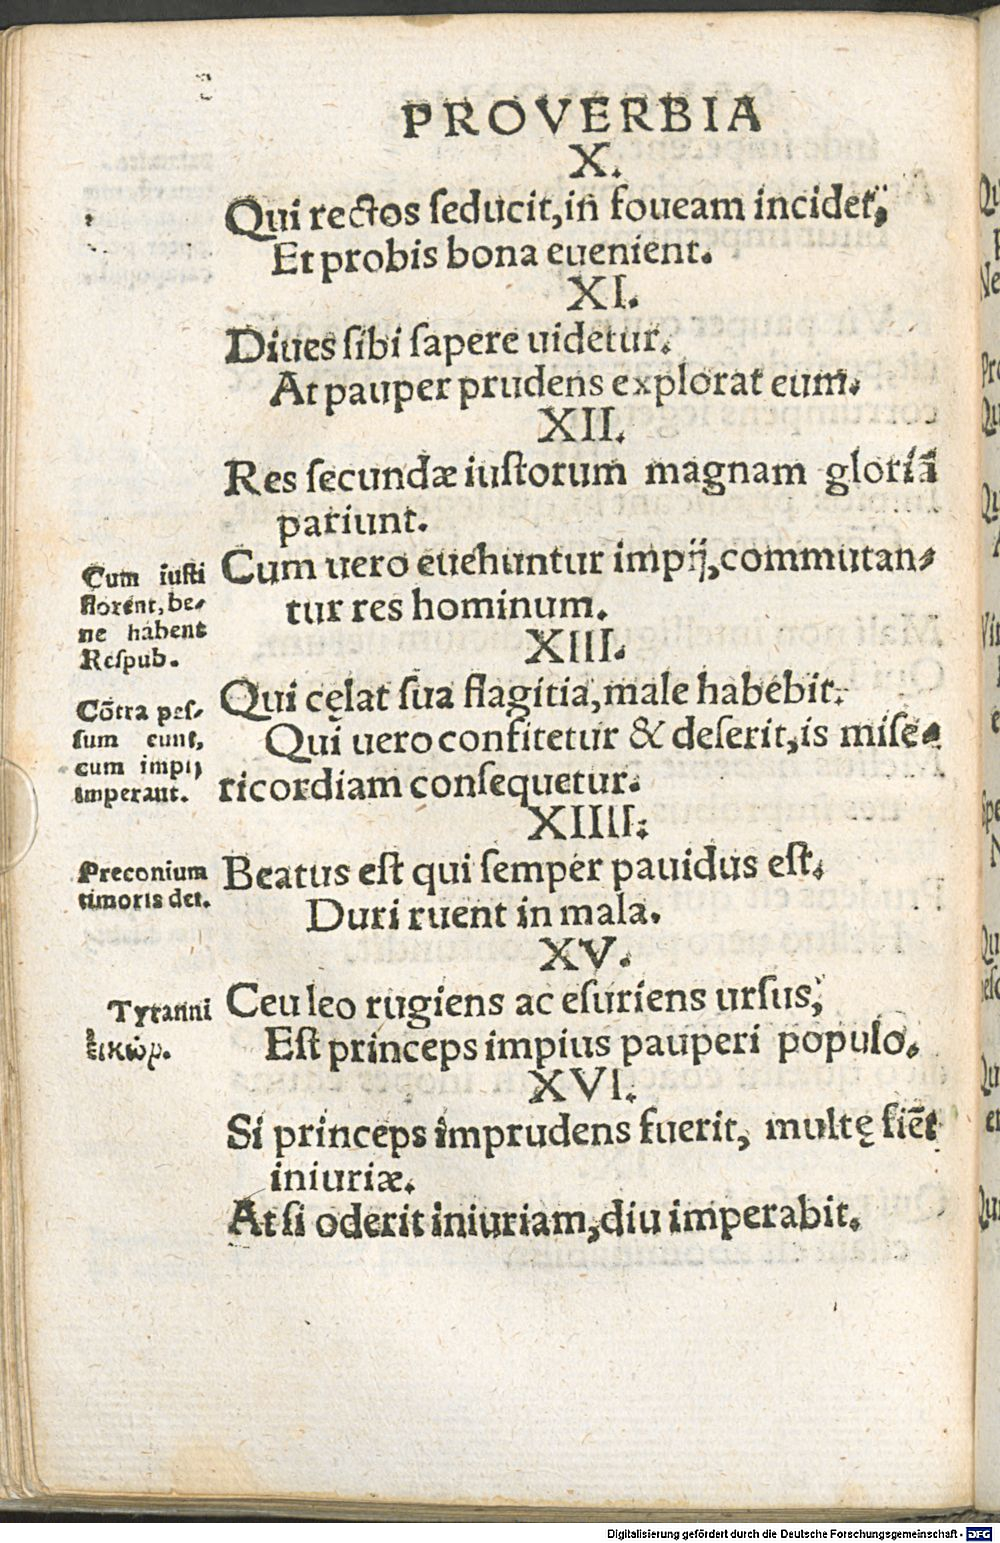 PROVERBIA
X.
Qui rectos ſeducit,in foueam incidet,
Et probis bona euenient.
XI.
Diues ſibi ſapere uidetur.
At pauper prudens explorat eum.
XII.
Res ſecundæ iuſtorum magnam gloriã
pariunt.
Cum uero euehuntur impij,commutan-
tur res hominum.
Cum iuſti
florent, be-
ne habent
Reſpub.
XIII.
Qui cęlat ſua flagitia,male habebit.
Qui uero confitetur & deſerit,is miſe-
ricordiam conſequetur.
Cõtra peſ-
ſum eunt,
cum impij
imperant.
XIIII.
Beatus eſt qui ſemper pauidus eſt.
Duri ruent in mala.
Preconium
timoris dei.
XV.
Ceu leo rugiens ac eſuriens urſus,
Eſt princeps impius pauperi populo.
Tyranni
XVI.
Si princeps imprudens fuerit, multę fiẽt
iniuriæ.
At ſi oderit iniuriam,diu imperabit.
Digitalisierung gefördert durch die Deutsche Forschungsgemeinschaft - DFG